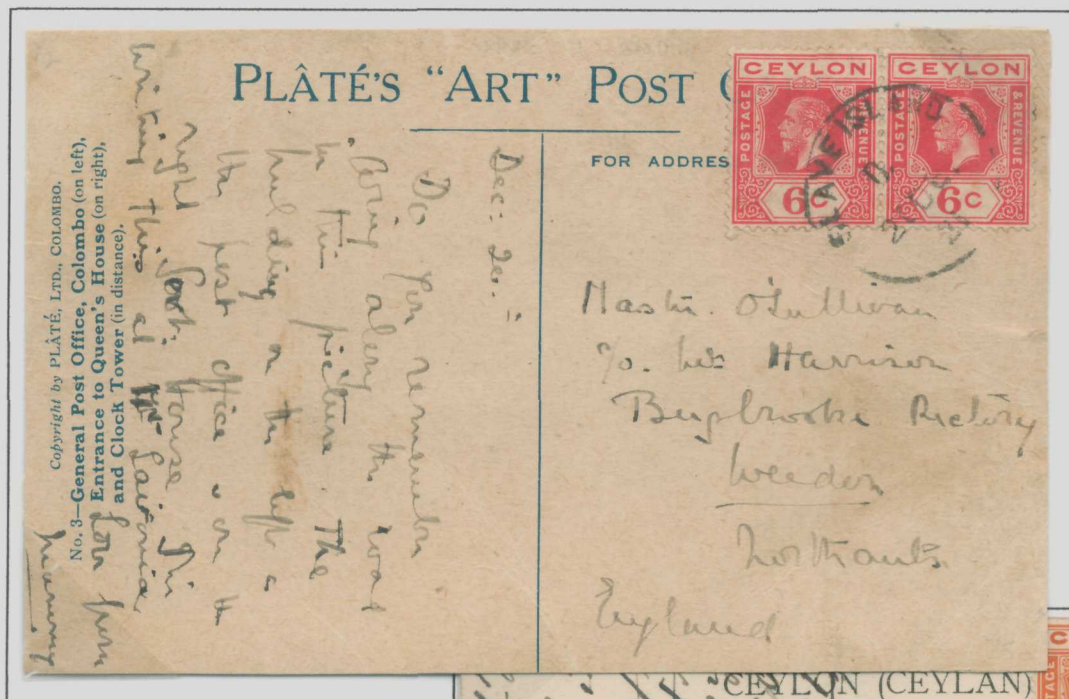 PLÂTÉ'S "ART" POST
FOR ADDRES
CEYLON
POSTAGE
6C
CEYLON
POSTAGE
& REVENUE
6C
SLAVE ISLAND
Copyright by PLÂTÉ, LTD., COLOMBO.
No. 3—General Post Office, Colombo (on left),
Entrance to Queen's House (on right),
and Clock Tower (in distance).
Dec: 20
Do you remember
going along the road
in this picture. The
building on the left is
the post office & on the
right House I'm
writing this at
Love from
Mummy
Master. O'Sullivan
c/o. Harrison
Bugbrooke Rectory
Weedon
Northants.
England
CEYLON (CEYLAN)